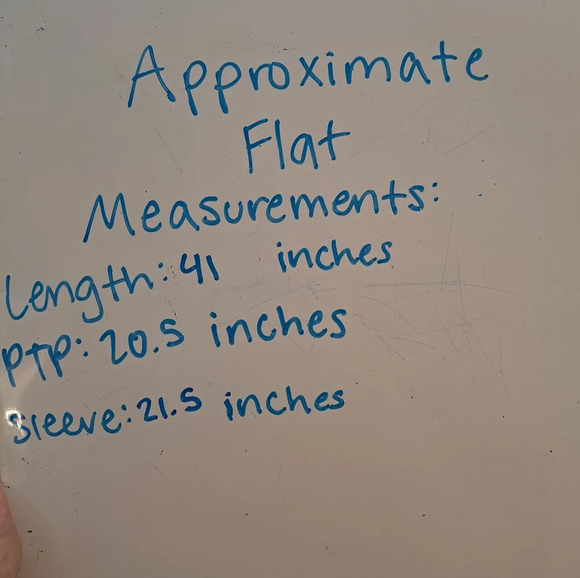 Approximate
Flat
Measurements:
Length: 41 inches
PTP: 20.5 inches
Sleeve: 21.5 inches